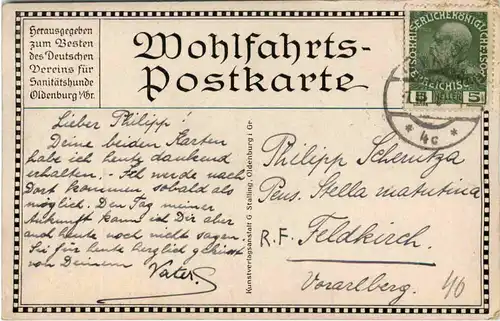 Herausgegeben
zum Besten
des Deutschen
Vereins für
Sanitätshunde
Oldenburg i/Gr.
Wohlfahrts-
Postkarte
KAISERLICHEKÖNIGLICHE
5 HELLER 5
* 4c *
Lieber Philipp!
Deine beiden Karten
habe ich heute dankend
erhalten. – Ich werde nach
Dort kommen, sobald als
möglich. Den Tag meiner
Ankunft kann ich Dir aber
auch heute noch nicht sagen.
Sei für heute herzlich gegrüsst
von Deinem
Vater
Kunstverlagsanstalt G Stalling, Oldenburg i Gr
Philipp
Pens. Stella matutina
R.F. Feldkirch.
Vorarlberg.